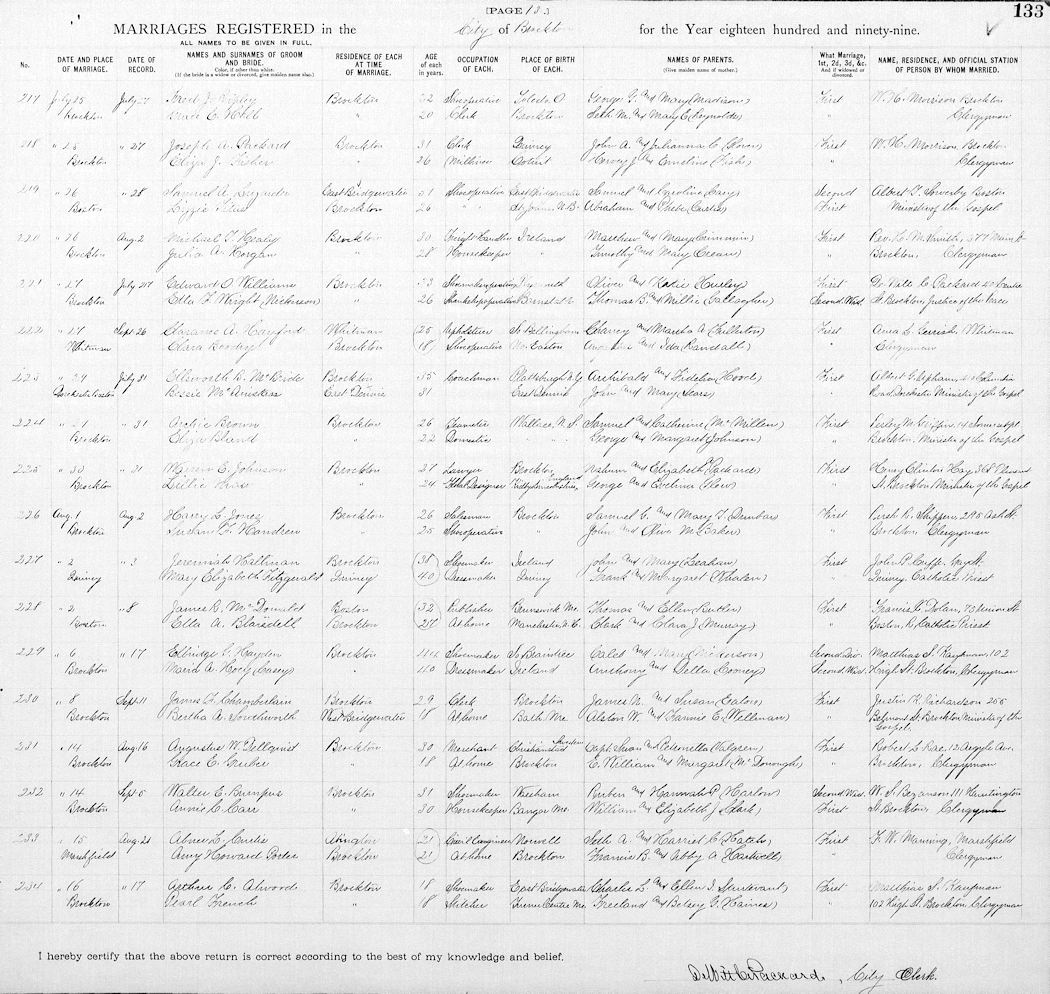 [PAGE 133]
133
MARRIAGES REGISTERED in the City of Brockton for the Year eighteen hundred and ninety-nine.
ALL NAMES TO BE GIVEN IN FULL.
No. DATE AND PLACE OF MARRIAGE. DATE OF RECORD. NAMES AND SURNAMES OF GROOM AND BRIDE. Color, if other than white. (If the bride is a widow or divorced, give maiden name also.) RESIDENCE OF EACH AT TIME OF MARRIAGE. AGE of each in years. OCCUPATION OF EACH. PLACE OF BIRTH OF EACH. NAMES OF PARENTS. (Give maiden name of mother.) What Marriage, 1st, 2d, 3d, &c. And if widowed or divorced. NAME, RESIDENCE, AND OFFICIAL STATION OF PERSON BY WHOM MARRIED.
217 July 25 July 27 Brockton 32 Shoeoperative Toledo O George G. and Mary (Madison) First W. H. Morrison Brockton
Brockton " 20 Clerk Brockton Seth M. and Mary E. (Reynolds) " Clergyman
218 " 25 " 27 Joseph A. Packard Brockton 31 Clerk Quincy John A. and Julianna C. First W. H. Morrison, Brockton
Brockton Eliza J. Fisher " 26 Milliner Cotuit and Emeline (Fish) " Clergyman
219 " 26 " 28 Samuel A. East Bridgewater 51 Shoeoperative East Bridgewater Samuel and Caroline Second Albert F. Boston
Boston Lizzie Titus Brockton 26 " St. John N. B. Abraham and Phebe (Curtis) First Minister of the Gospel
220 " 26 Aug. 2 Michael T. Healy Brockton 30 Freight Handler Ireland Matthew and Mary First Rev.
Brockton Julia A. Horgan " 28 Housekeeper " Timothy and Mary (Crean) " Brockton, Clergyman
221 " 27 July 27 Edward O. Williams Brockton 33 Oliver and Katie (Hurley) First De Witt C. Packard
Brockton Ella F. Wright, (Nickerson) " 26 Thomas B. and Millie (Gallagher) Second Wid. St. Brockton, Justice of the Peace
222 " 27 Sept. 26 Clarence A. Hayford Whitman 25 Upholsterer Bellingham and Martha A. (Fullerton) First Whitman
Whitman Clara Brockton 18 Shoeoperative No. Easton and Ida (Randall) " Clergyman
223 " 29 July 31 Ellsworth B. McBride Brockton 35 Coachman Plattsburgh N.Y. Archibald and Fidelia First Albert G. Upham,
Bessie McAniskas East Dennis 31 East Dennis John and Mary (Sears) " Minister of the Gospel
224 " 31 Archie Brown Brockton 26 Teamster Wallace, N. S. Samuel and Catherine (McMillen) First
Brockton Eliza Bland " 22 Domestic " George and Margaret (Johnson) " Brockton, Minister of the Gospel
225 " 30 " 31 Warren E. Johnson Brockton 37 Lawyer Brockton Nahum and Elizabeth (Packard) First Henry Clinton Hay, 368
Brockton Lillie " 24 Designer England George and Evelina " St. Brockton Minister of the Gospel
226 Aug. 1 Aug. 2 Harry L. Jones Brockton 26 Salesman Brockton Samuel C. and Mary T. (Dunbar) First 295 Ash St.
Brockton " 25 Shoeoperative " John and Olive M. (Baker) " Brockton, Clergyman
227 " 2 " 3 Jeremiah Hallman Brockton 38 Shoemaker Ireland John and Mary First John P. Cuffe,
Quincy Mary Elizabeth Fitzgerald Quincy 40 Dressmaker Quincy Frank and Margaret (Whalen) " Quincy, Catholic Priest
228 " 2 " 8 James B. McDonald Boston 32 Publisher Brunswick Me. Thomas and Ellen (Butler) First Francis Dolan, 73 Union St
Boston Ella A. Blaisdell Brockton 27 At home Manchester, N. H. Clark and Clara J. (Murray) " Boston, R. Catholic Priest
229 " 6 " 17 Elbridge Hayden Brockton 44 Shoemaker So. Braintree Caleb and Mary Second Div. Matthias S. Kaufman, 102
Brockton Maria A. Hoey (Casey) " 40 Dressmaker Ireland Anthony and Della (Cooney) Second Wid. High St. Brockton, Clergyman
230 " 8 Sept. 11 James F. Chamberlain Brockton 29 Clerk Brockton James A. and Susan (Eaton) First Justin K. Richardson 255
Brockton Bertha A. Southworth West Bridgewater 18 At home Bath Me. Alston W. and Fannie E. (Wellman) " Belmont St. Brockton Minister of the Gospel
231 " 14 Aug. 16 Augustus W. Tellquist Brockton 30 Merchant Christianstad Sweden Capt. Swan and Petronella (Valgren) First Robert L. Rae, 12 Argyle Ave.
Brockton Grace E. " 18 At home Brockton E. William and Margaret (McDonough) " Brockton, Clergyman
232 " 14 Sept. 5 Walter E. Bumpus Brockton 31 Shoemaker Wareham Reuben and Hannah P. (Harlow) Second Wid. W. S. Bezanson 111 Huntington
Brockton Annie C. Carr " 30 Housekeeper Bangor Me. William and Elizabeth J. (Clark) First St. Brockton, Clergyman
233 " 15 Aug. 21 Abner L. Curtis Abington 21 Norwell Seth A. and Harriet C. (Hatch) First F. W. Manning, Marshfield
Marshfield Amy Howard Porter Brockton 21 At home Brockton Francis B. and Abby A. (Hartwell) " Clergyman
234 " 16 " 17 Arthur C. Atwood Brockton 18 Shoemaker East Bridgewater Charles L. and Ellen I. (Sturtevant) First Matthias S. Kaufman
Brockton Pearl French " 18 Stitcher Turner Centre Me. Freeland and Betsey G. (Haines) " 102 High St. Brockton, Clergyman
I hereby certify that the above return is correct according to the best of my knowledge and belief.
De Witt C. Packard, City Clerk.